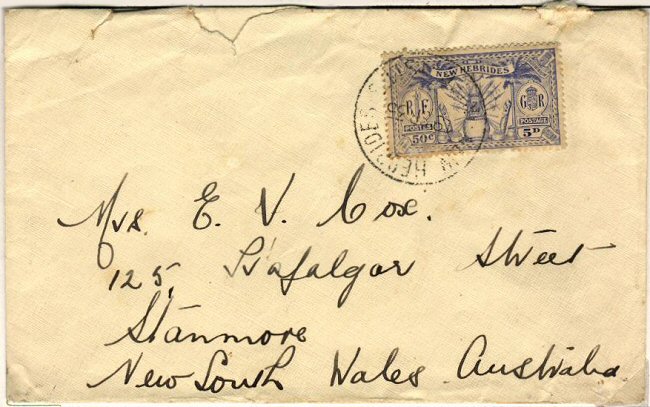 NEW HEBRIDES
R F
G R
POSTES
POSTAGE
50c
5D
NEW HEBRIDES
Mrs. E. V. Cox.
125, Trafalgar Street
Stanmore
New South Wales. Australia.